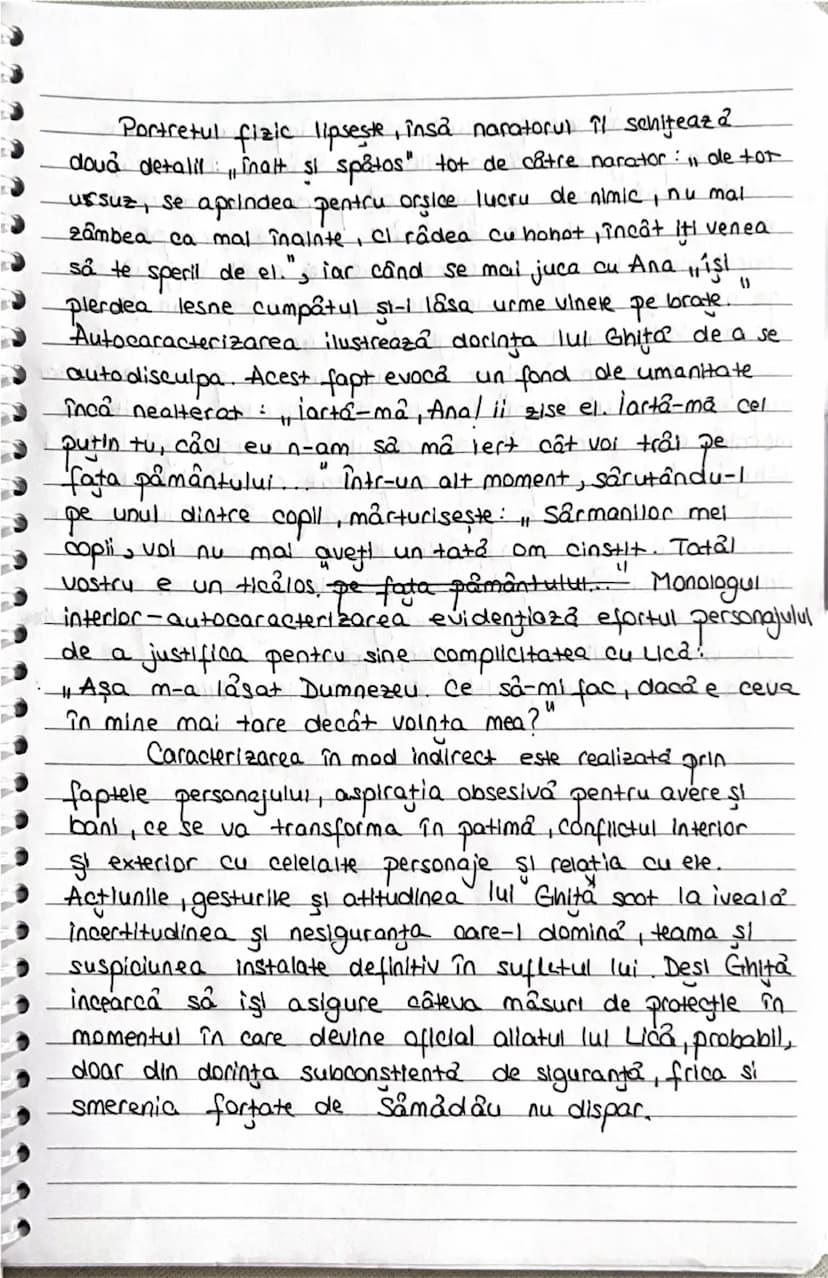 Portretul fizic lipsește, însă naratorul îl schițează
două detalii: „înalt și spătos" tot de către narator: „de tot
ursuz, se aprindea pentru orșice lucru de nimic, nu mai
zâmbea ca mai înainte, ci râdea cu hohot, încât îți venea
să te sperii de el.", iar când se mai juca cu Ana „își
pierdea lesne cumpătul și-i lăsa urme vinete pe brațe."
Autocaracterizarea ilustrează dorința lui Ghiță de a se
autodisculpa. Acest fapt evocă un fond de umanitate
încă nealterat: „iartă-mă, Ana! ii zise el. Iartă-mă cel
puțin tu, căci eu n-am să mă iert cât voi trăi pe
fața pământului..." într-un alt moment, sărutându-l
pe unul dintre copii, mărturisește: „Sărmanilor mei
copii, voi nu mai aveți un tată om cinstit. Tatăl
vostru e un ticălos. pe fața pământului..." Monologul
interior-autocaracterizarea evidențiază efortul personajului
de a justifica pentru sine complicitatea cu Lică:
„Așa m-a lăsat Dumnezeu. Ce să-mi fac, dacă e ceva
în mine mai tare decât voința mea?"
Caracterizarea în mod indirect este realizată prin
faptele personajului, aspirația obsesivă pentru avere și
bani, ce se va transforma în patimă, conflictul interior
și exterior cu celelalte personaje și relația cu ele.
Acțiunile, gesturile și atitudinea lui Ghiță scot la iveală
incertitudinea și nesiguranța care-l domină, teama și
suspiciunea instalate definitiv în sufletul lui. Deși Ghiță
încearcă să își asigure câteva măsuri de protecție în
momentul în care devine oficial aliatul lui Lică, probabil,
doar din dorința subconștientă de siguranță, frica si
smerenia forțate de Sămădău nu dispar.